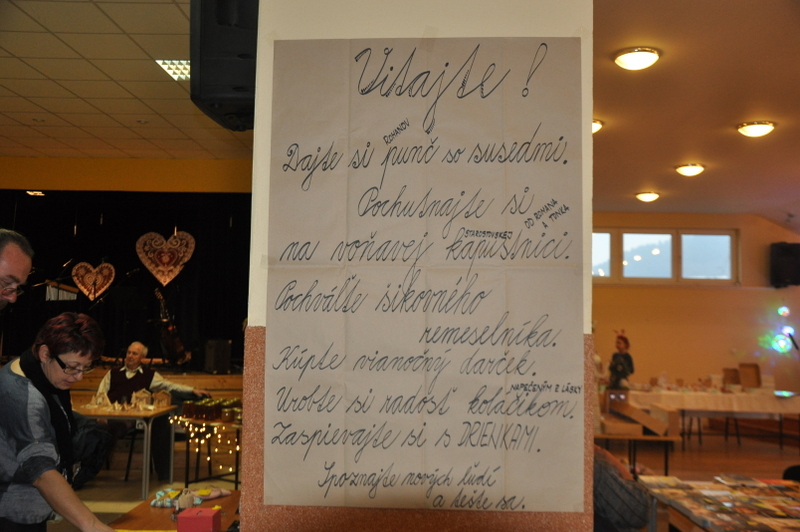 Vitajte!
ROMANOV
Dajte si punč so susedmi.
Pochutnajte si
OD ROMANA
& TINKA
STAROSTOVSKEJ
na voňavej kapustnici.
Pochváľte šikovného
remeselníka.
Kúpte vianočný darček.
NAPEČENÝM Z LÁSKY
Urobte si radosť koláčikom.
Zaspievajte si s DRIENKAMI.
Spoznajte nových ľudí
a tešte sa.